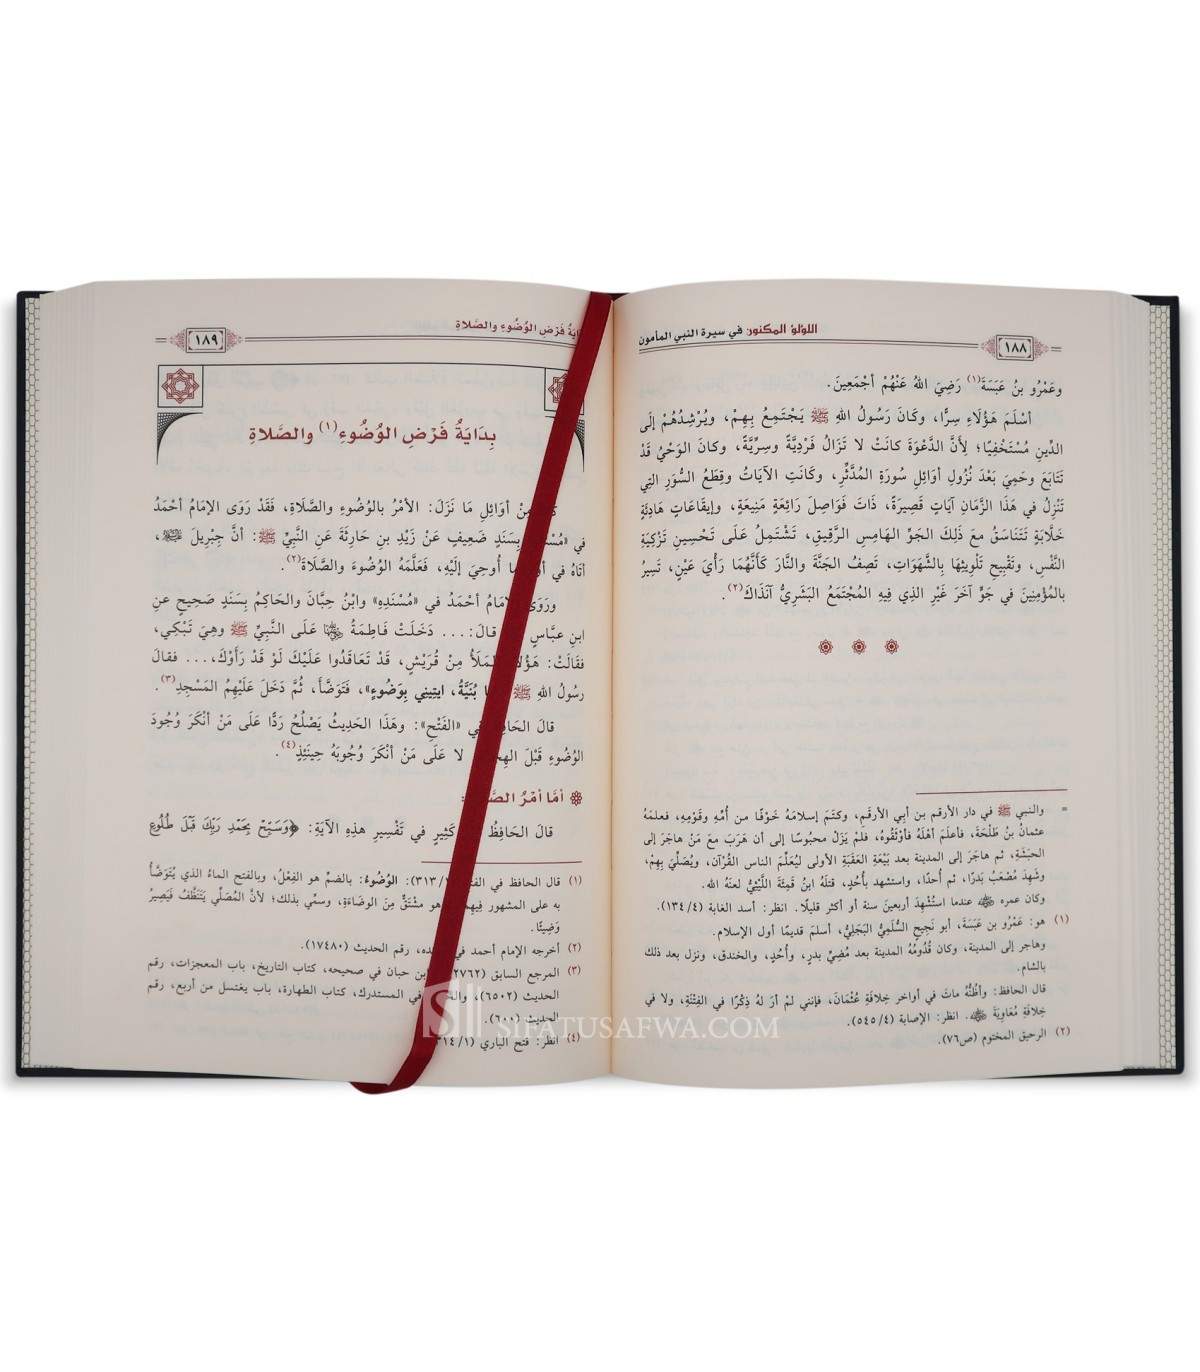 اللؤلؤ المكنون في سيرة النبي المأمون
١٨٨
وعَمْرُو بنُ عَبَسَةَ(١) رَضِيَ اللهُ عَنْهُمْ أجْمَعِينَ.
أسْلَمَ هَؤُلَاءِ سِرًّا، وكَانَ رَسُولُ اللهِ ﷺ يَجْتَمِعُ بِهِمْ، ويُرْشِدُهُمْ إلَى
الدِّينِ مُسْتَخْفِيًا؛ لِأَنَّ الدَّعْوَةَ كانَتْ لا تَزَالُ فَرْدِيَّةً وسِرِّيَّةً، وكانَ الوَحْيُ قَدْ
تَتَابَعَ وحَمِيَ بَعْدَ نُزُولِ أوَائِلِ سُورَةِ المُدَّثِّرِ، وكَانَتِ الآيَاتُ وقِطَعُ السُّوَرِ التِي
تَنْزِلُ في هَذَا الزَّمَانِ آيَاتٍ قَصِيرَةً، ذَاتَ فَوَاصِلَ رَائِعَةٍ مَنِيعَةٍ، وإيقَاعَاتٍ هَادِئَةٍ
خَلَّابَةٍ تَتَنَاسَقُ مَعَ ذَلِكَ الجَوِّ الهَامِسِ الرَّقِيقِ، تَشْتَمِلُ عَلَى تَحْسِينِ تَزْكِيَةِ
النَّفْسِ، وتَقْبِيحِ تَلْوِيثِهَا بِالشَّهَوَاتِ، تَصِفُ الجَنَّةَ والنَّارَ كَأَنَّهُمَا رَأْيَ عَيْنٍ، تَسِيرُ
بالمُؤْمِنِينَ في جَوٍّ آخَرَ غَيْرِ الذِي فِيهِ المُجْتَمَعُ البَشَرِيُّ آنَذَاكَ(٢).
= والنبي ﷺ في دار الأرقم بن أبي الأرقم، وكتَمَ إسلامَهُ خَوْفًا من أُمِّهِ وقَوْمِهِ، فعلمَهُ
عثمانُ بنُ طَلْحَةَ، فأعلَمَ أهْلَهُ فأوْثَقُوهُ، فلَمْ يَزَلْ محبُوسًا إلى أن هَرَبَ مَعَ مَنْ هاجَرَ إلى
الحبَشَةِ، ثم هاجَرَ إلى المدينة بعد بَيْعَةِ العَقَبَةِ الأولى ليُعَلِّمَ الناس القُرْآن، ويُصَلِّيَ بِهِمْ،
وشَهِدَ مُصْعَبٌ بَدْرًا، ثم أُحُدًا، واستشهد بأُحُدٍ، قتلَهُ ابنُ قَمِئَةَ اللَّيْثِيُّ لعنَهُ الله.
وكان عمره ﷺ عندما استُشْهِدَ أربعينَ سنة أو أكثر قليلًا. انظر: أسد الغابة (٤/ ١٣٤).
(١) هو: عَمْرُو بن عَبَسَةَ، أبو نَجِيحِ السُّلَمِيُّ البَجَلِيُّ، أسلمَ قديمًا أول الإسلام.
وهاجر إلى المدينة، وكان قُدُومُهُ المدينة بعد مُضِيِّ بدرٍ، وأُحُدٍ، والخندق، ونزل بعد ذلك
بالشام.
قال الحافظ: وأظُنُّهُ ماتَ في أواخر خِلافَةِ عُثْمَانَ، فإنني لم أرَ لهُ ذِكْرًا في الفِتْنَةِ، ولا في
خِلافَةِ مُعَاوِيَةَ. انظر: الإصابة (٤/ ٥٤٥).
(٢) الرحيق المختوم (ص٧٦).
فَرْضِ الوُضُوءِ والصَّلاةِ
١٨٩
بِدَايَةُ فَرْضِ الوُضُوءِ(١) والصَّلاةِ
مِنْ أوَائِلِ مَا نَزَلَ: الأمْرُ بالوُضُوءِ والصَّلَاةِ، فَقَدْ رَوَى الإمَامُ أحْمَدُ
في بِسَنَدٍ ضَعِيفٍ عَنْ زَيْدِ بنِ حَارِثَةَ عَنِ النَّبِيِّ ﷺ: أنَّ جِبْرِيلَ عليه السلام،
أتَاهُ في مَا أُوحِيَ إلَيْهِ، فَعَلَّمَهُ الوُضُوءَ والصَّلَاةَ(٢).
ورَوَى أحْمَدُ في «مُسْنَدِهِ» وابْنُ حِبَّانَ والحَاكِمُ بِسَنَدٍ صَحِيحٍ عنِ
ابنِ عبَّاسٍ قالَ:... دَخَلَتْ فَاطِمَةُ عَلَى النَّبِيِّ ﷺ وهِيَ تَبْكِي،
فقَالَتْ: مِنْ قُرَيْشٍ، قَدْ تَعَاقَدُوا عَلَيْكَ لَوْ قَدْ رَأَوْكَ،... فقالَ
رسُولُ اللهِ ﷺ بُنَيَّةُ، ايتِينِي بِوَضُوءٍ»، فَتَوَضَّأَ، ثُمَّ دَخَلَ عَلَيْهِمُ المَسْجِدِ(٣).
قالَ في «الفَتْحِ»: وهَذَا الحَدِيثُ يَصْلُحُ رَدًّا عَلَى مَنْ أنْكَرَ وُجُودَ
الوُضُوءِ قَبْلَ لا عَلَى مَنْ أنْكَرَ وُجُوبَهُ حِينَئِذٍ(٤).
أمَّا أمْرُ
قالَ الحَافِظُ كَثِيرٍ في تَفْسِيرِ هذِهِ الآيَةِ: ﴿وَسَبِّحْ بِحَمْدِ رَبِّكَ قَبْلَ طُلُوعِ
(١) قال الحافظ في ٣١٣): الوُضُوءُ: بالضمِّ هو الفِعْلُ، وبالفتح الماءُ الذي يُتَوَضَّأُ
به على المشهور هو مشْتَقٌّ مِنَ الوضَاءَةِ، وسمِّي بذلك؛ لأنَّ المُصَلِّي يَتَنَظَّفُ فَيَصِيرُ
وَضِيئًا.
(٢) أخرجه الإمام أحمد في رقم الحديث (١٧٤٨٠).
(٣) المرجع السابق (٢٧٦٢) ابن حبان في صحيحه، كتاب التاريخ، باب المعجزات، رقم
الحديث (٦٥٠٢)، في المستدرك، كتاب الطهارة، باب يغتسل من أربع، رقم
الحديث (٦٠٠).
(٤) انظر: فتح الباري (١/
SIFATUSAFWA.COM